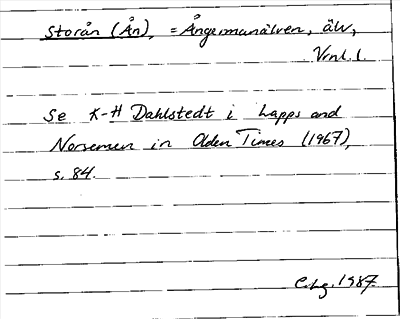 Storån (Ån), = Ångermanälven, älv,
Vrml. l.
Se K-H Dahlstedt i Lapps and
Norsemen in Olden Times (1967),
s. 84.
1987.